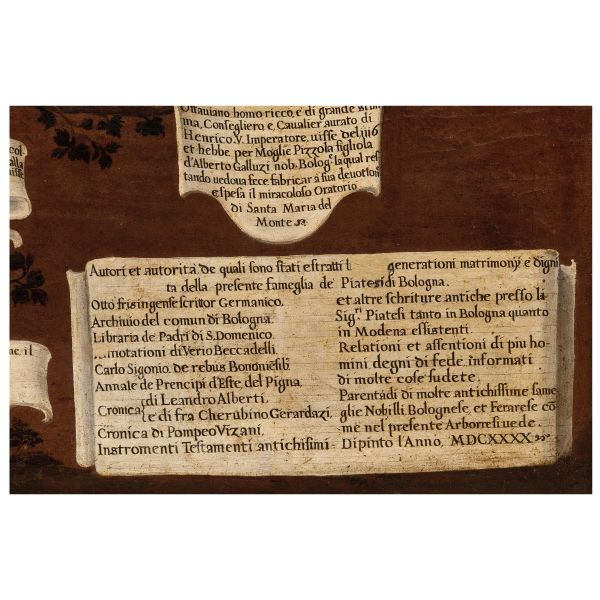 Ottauiano homo ricco, e di grande stima
ma, Consegliero e, Caualier aurato di
Henrico. V. Imperatore, uisse del 1116
et hebbe per Moglie Pizzola figliola
d'Alberto Galluzi nob. Bolog.e la qual res
tando uedoua fece fabricar a sua deuotion
e spesa il miracoloso Oratorio
di Santa Maria del
Monte
me il
Autori et autorita de quali sono stati estratti
generationi matrimony e digni
ta della presente fameglia de Piatesi di Bologna.
Otto frisingense scrittor Germanico.
Archiuio del comun di Bologna.
Libraria de Padri di S. Domenico.
notationi di Verio Beccadelli.
Carlo Sigonio de rebus Bononiesib.
Annale de Prencipi d'Este, del Pigna.
Cronica di Leandro Alberti.
e di fra Cherubino Gerardazi,
Cronica di Pompeo Vizani.
Instromenti Testamenti antichisimi
et altre schriture antiche presso li
Sig.ri Piatesi tanto in Bologna quanto
in Modena essistenti.
Relationi et assentioni di piu ho
mini degni di fede informati
di molte cose sudete.
Parentadi di molte antichissime fame
glie Nobilli Bolognese et Ferarese co
me nel presente Arborre si uede.
Dipinto l'Anno, MDCXXXX